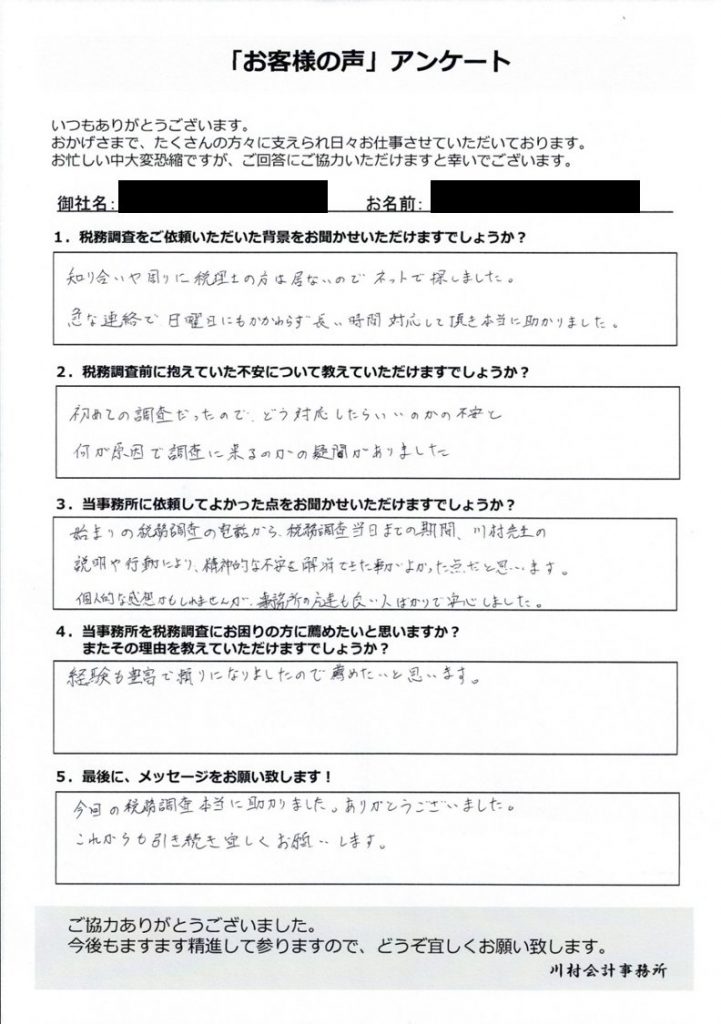 「お客様の声」アンケート
いつもありがとうございます。
おかげさまで、たくさんの方々に支えられ日々お仕事させていただいております。
お忙しい中大変恐縮ですが、ご回答にご協力いただけますと幸いでございます。
御社名： お名前：
１．税務調査をご依頼いただいた背景をお聞かせいただけますでしょうか？
知り合いや周りに税理士の方は居ないので ネットで探しました。
急な連絡で 日曜日にもかかわらず 長い時間 対応して頂き本当に助かりました。
２．税務調査前に抱えていた不安について教えていただけますでしょうか？
初めての調査だったので、どう対応したらいいのかの不安と
何が原因で調査に来るのかの疑問がありました
３．当事務所に依頼してよかった点をお聞かせいただけますでしょうか？
始まりの税務調査の電話から、税務調査当日までの期間、川村先生の
説明や行動により、精神的な不安を解消できた事がよかった点だと思います。
個人的な感想かもしれませんが、事務所の方達も良い人ばかりで安心しました。
４．当事務所を税務調査にお困りの方に薦めたいと思いますか？
またその理由を教えていただけますでしょうか？
経験も豊富で頼りになりましたので 薦めたいと思います。
５．最後に、メッセージをお願い致します！
今回の税務調査本当に助かりました。ありがとうございました。
これからも引き続き宜しくお願いします。
ご協力ありがとうございました。
今後もますます精進して参りますので、どうぞ宜しくお願い致します。
川村会計事務所